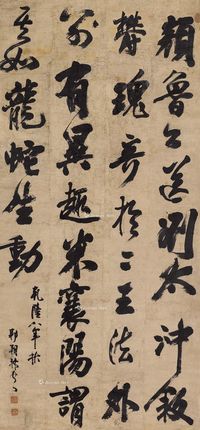 顏魯公送劉太沖敘
鬱瑰奇於二王法外
別有異趣米襄陽謂
其如龍蛇生動
乾隆八年於